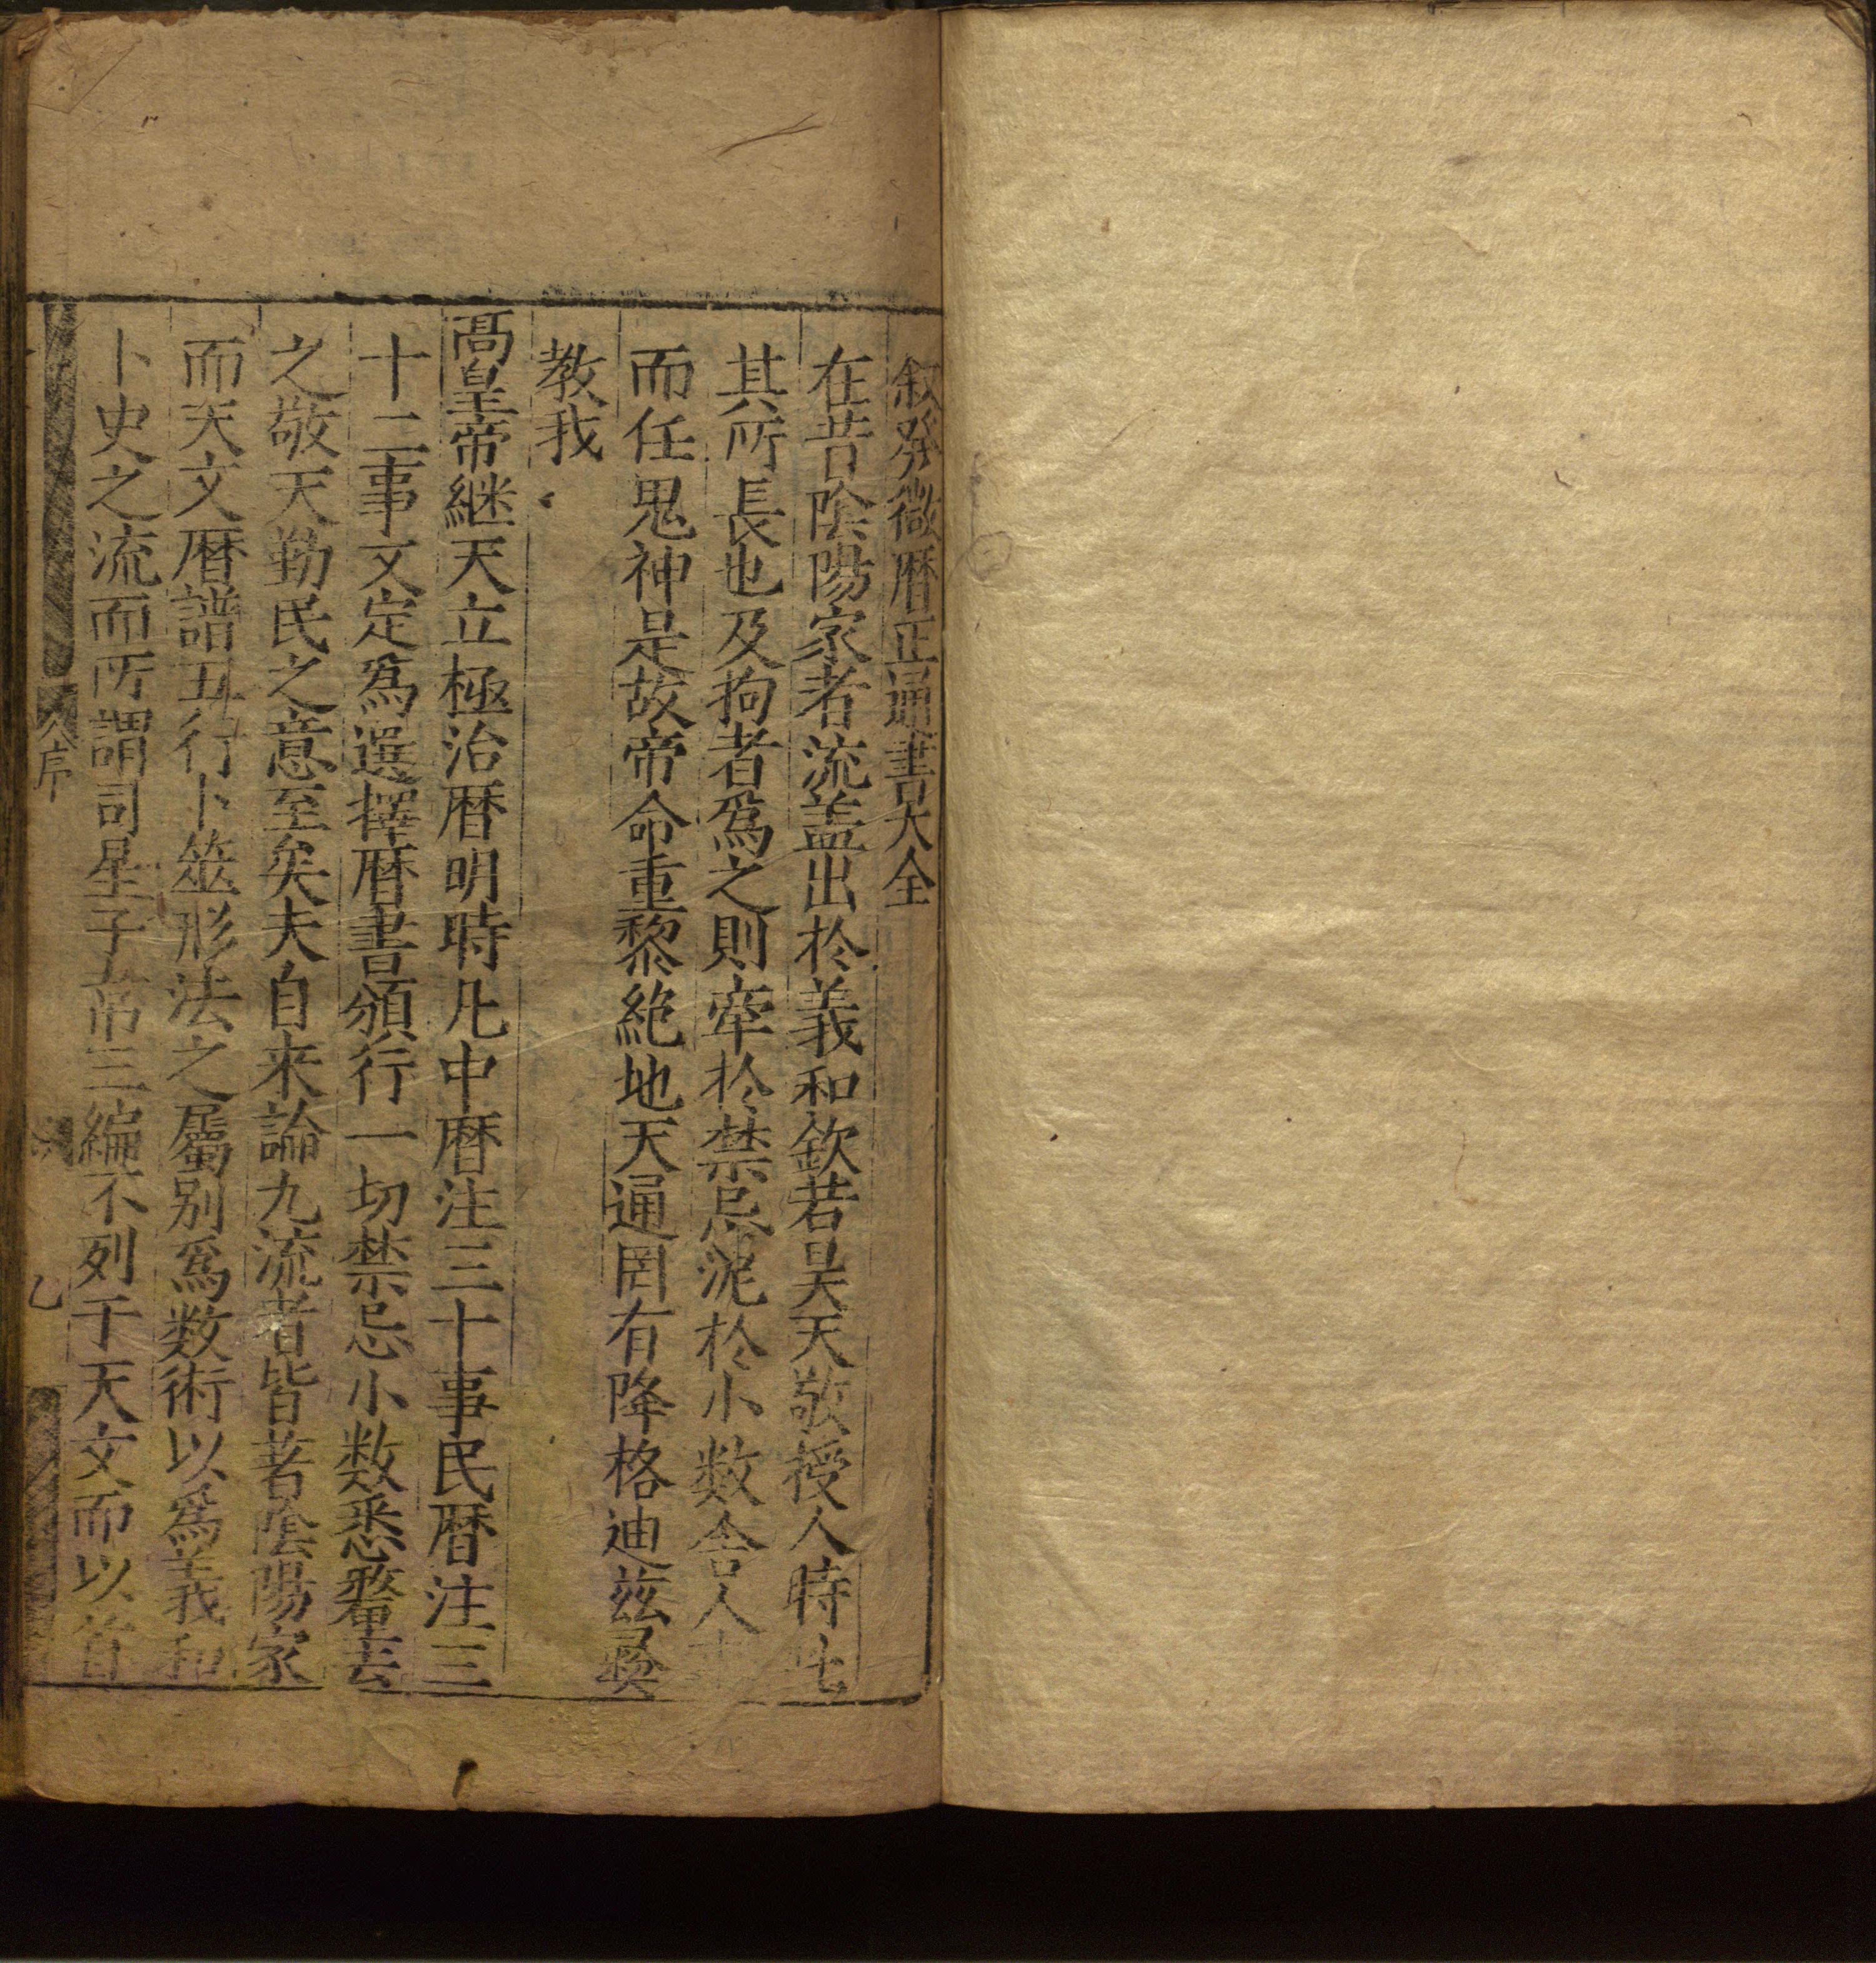 叙發微曆正通書大全
在昔陰陽家者流盖出於義和欽若昊天敬授人時此
其所長也及拘者爲之則牽於禁忌泥於小数舍人
而任鬼神是故帝命重黎絶地天通罔有降格迪兹彛
教我
髙皇帝継天立極治暦明時凡中暦注三十事民暦注三
十二事文定爲選擇暦書頒行一切禁忌小数悉釐去
之敬天勤民之意至矣夫自来論九流者皆著陰陽家
而天文暦譜五行卜筮形法之屬别爲数術以爲義和
卜史之流而所謂司星子韋三編不列于天文而以
序
乙